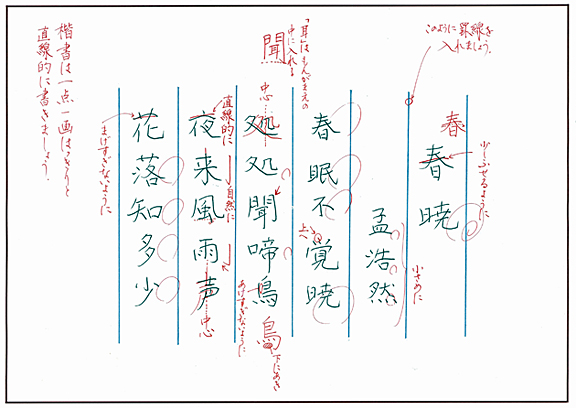 このように罫線を
入れましょう。
春
春暁
少しふせるように
孟浩然
小さめに
春眠不覚暁
上へ
「耳」はもんがまえの
中に入れる
聞
中心
処処聞啼鳥
鳥
下にあき
あけすぎないように
直線的に
夜来風雨声
自然に
中心
花落知多少
まげすぎないように
楷書は一点一画はっきりと
直線的に書きましょう。